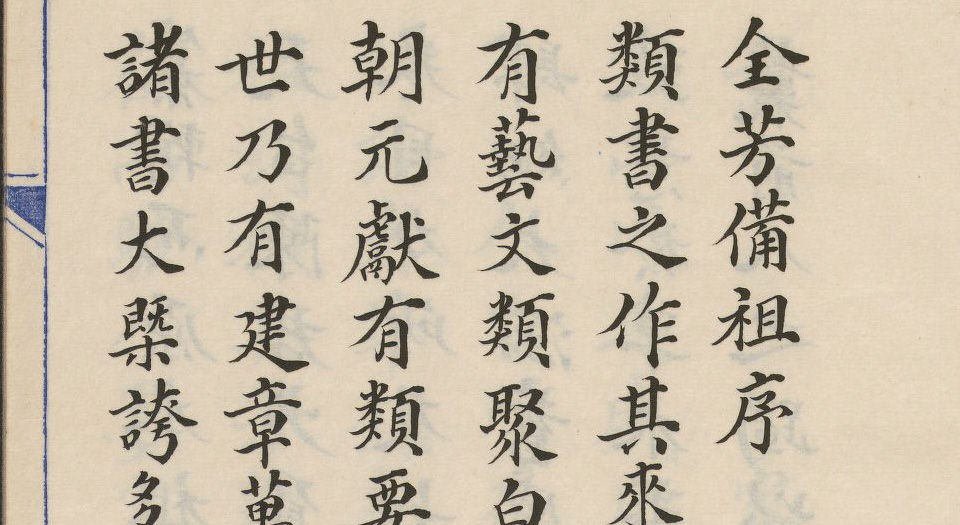 全芳備祖序
類書之作其來
有藝文類聚白
朝元獻有類要
世乃有建章萬
諸書大槩誇多